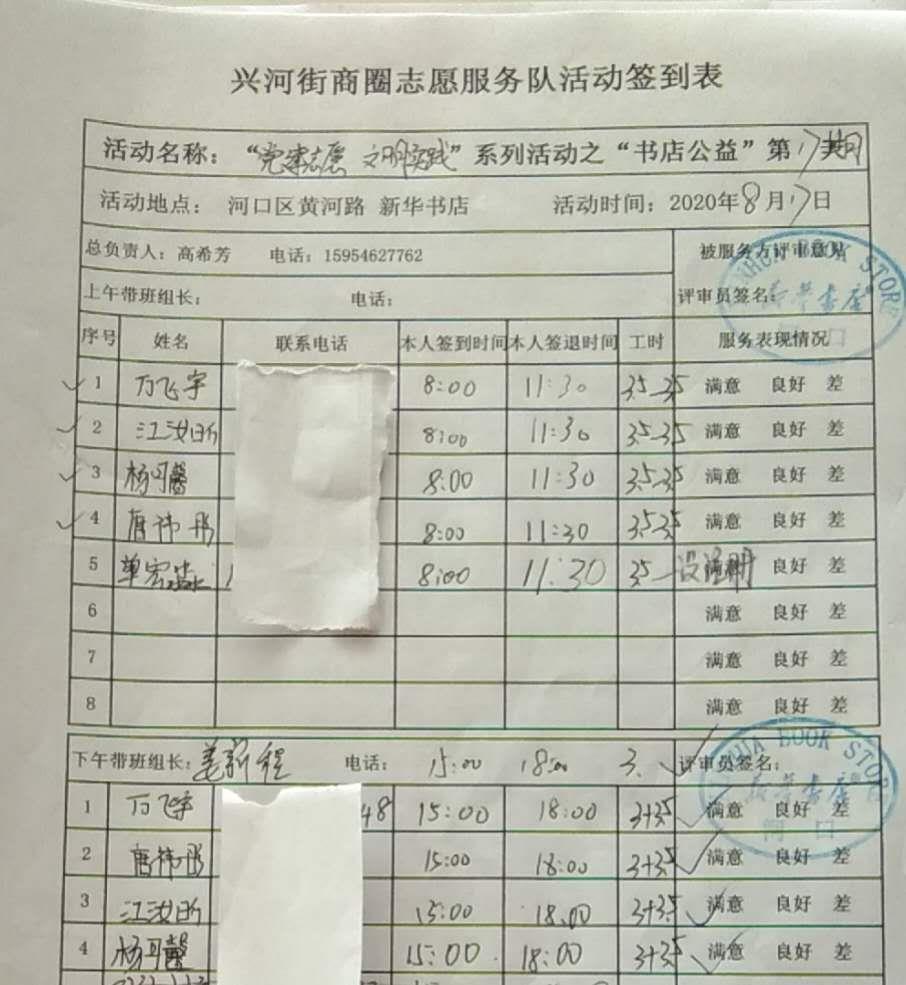 兴河街商圈志愿服务队活动签到表
活动名称：“党建志愿 文明实践”系列活动之“书店公益”第17期
活动地点： 河口区黄河路 新华书店 活动时间：2020年8月17日
总负责人：高希芳 电话：15954627762 被服务方评审意见
上午带班组长： 电话： 评审员签名：
序号 姓名 联系电话 本人签到时间 本人签退时间 工时 服务表现情况
1 万飞宇 8:00 11:30 3.5 3.5 满意 良好 差
2 江汝昕 8:00 11:30 3.5 3.5 满意 良好 差
3 杨可馨 8:00 11:30 3.5 3.5 满意 良好 差
4 唐祎彤 8:00 11:30 3.5 3.5 满意 良好 差
5 单宏淼 8:00 11:30 3.5 满意 良好 差
6 满意 良好 差
7 满意 良好 差
8 满意 良好 差
下午带班组长：姜新程 电话： 15:00 18:00 3. 评审员签名：
1 万飞宇 48 15:00 18:00 3+3.5 满意 良好 差
2 唐祎彤 15:00 18:00 3+3.5 满意 良好 差
3 江汝昕 15:00 18:00 3+3.5 满意 良好 差
4 杨可馨 15:00 18:00 3+3.5 满意 良好 差
XINHUA BOOK STORE
新华书店
河口
XINHUA BOOK STORE
新华书店
河口